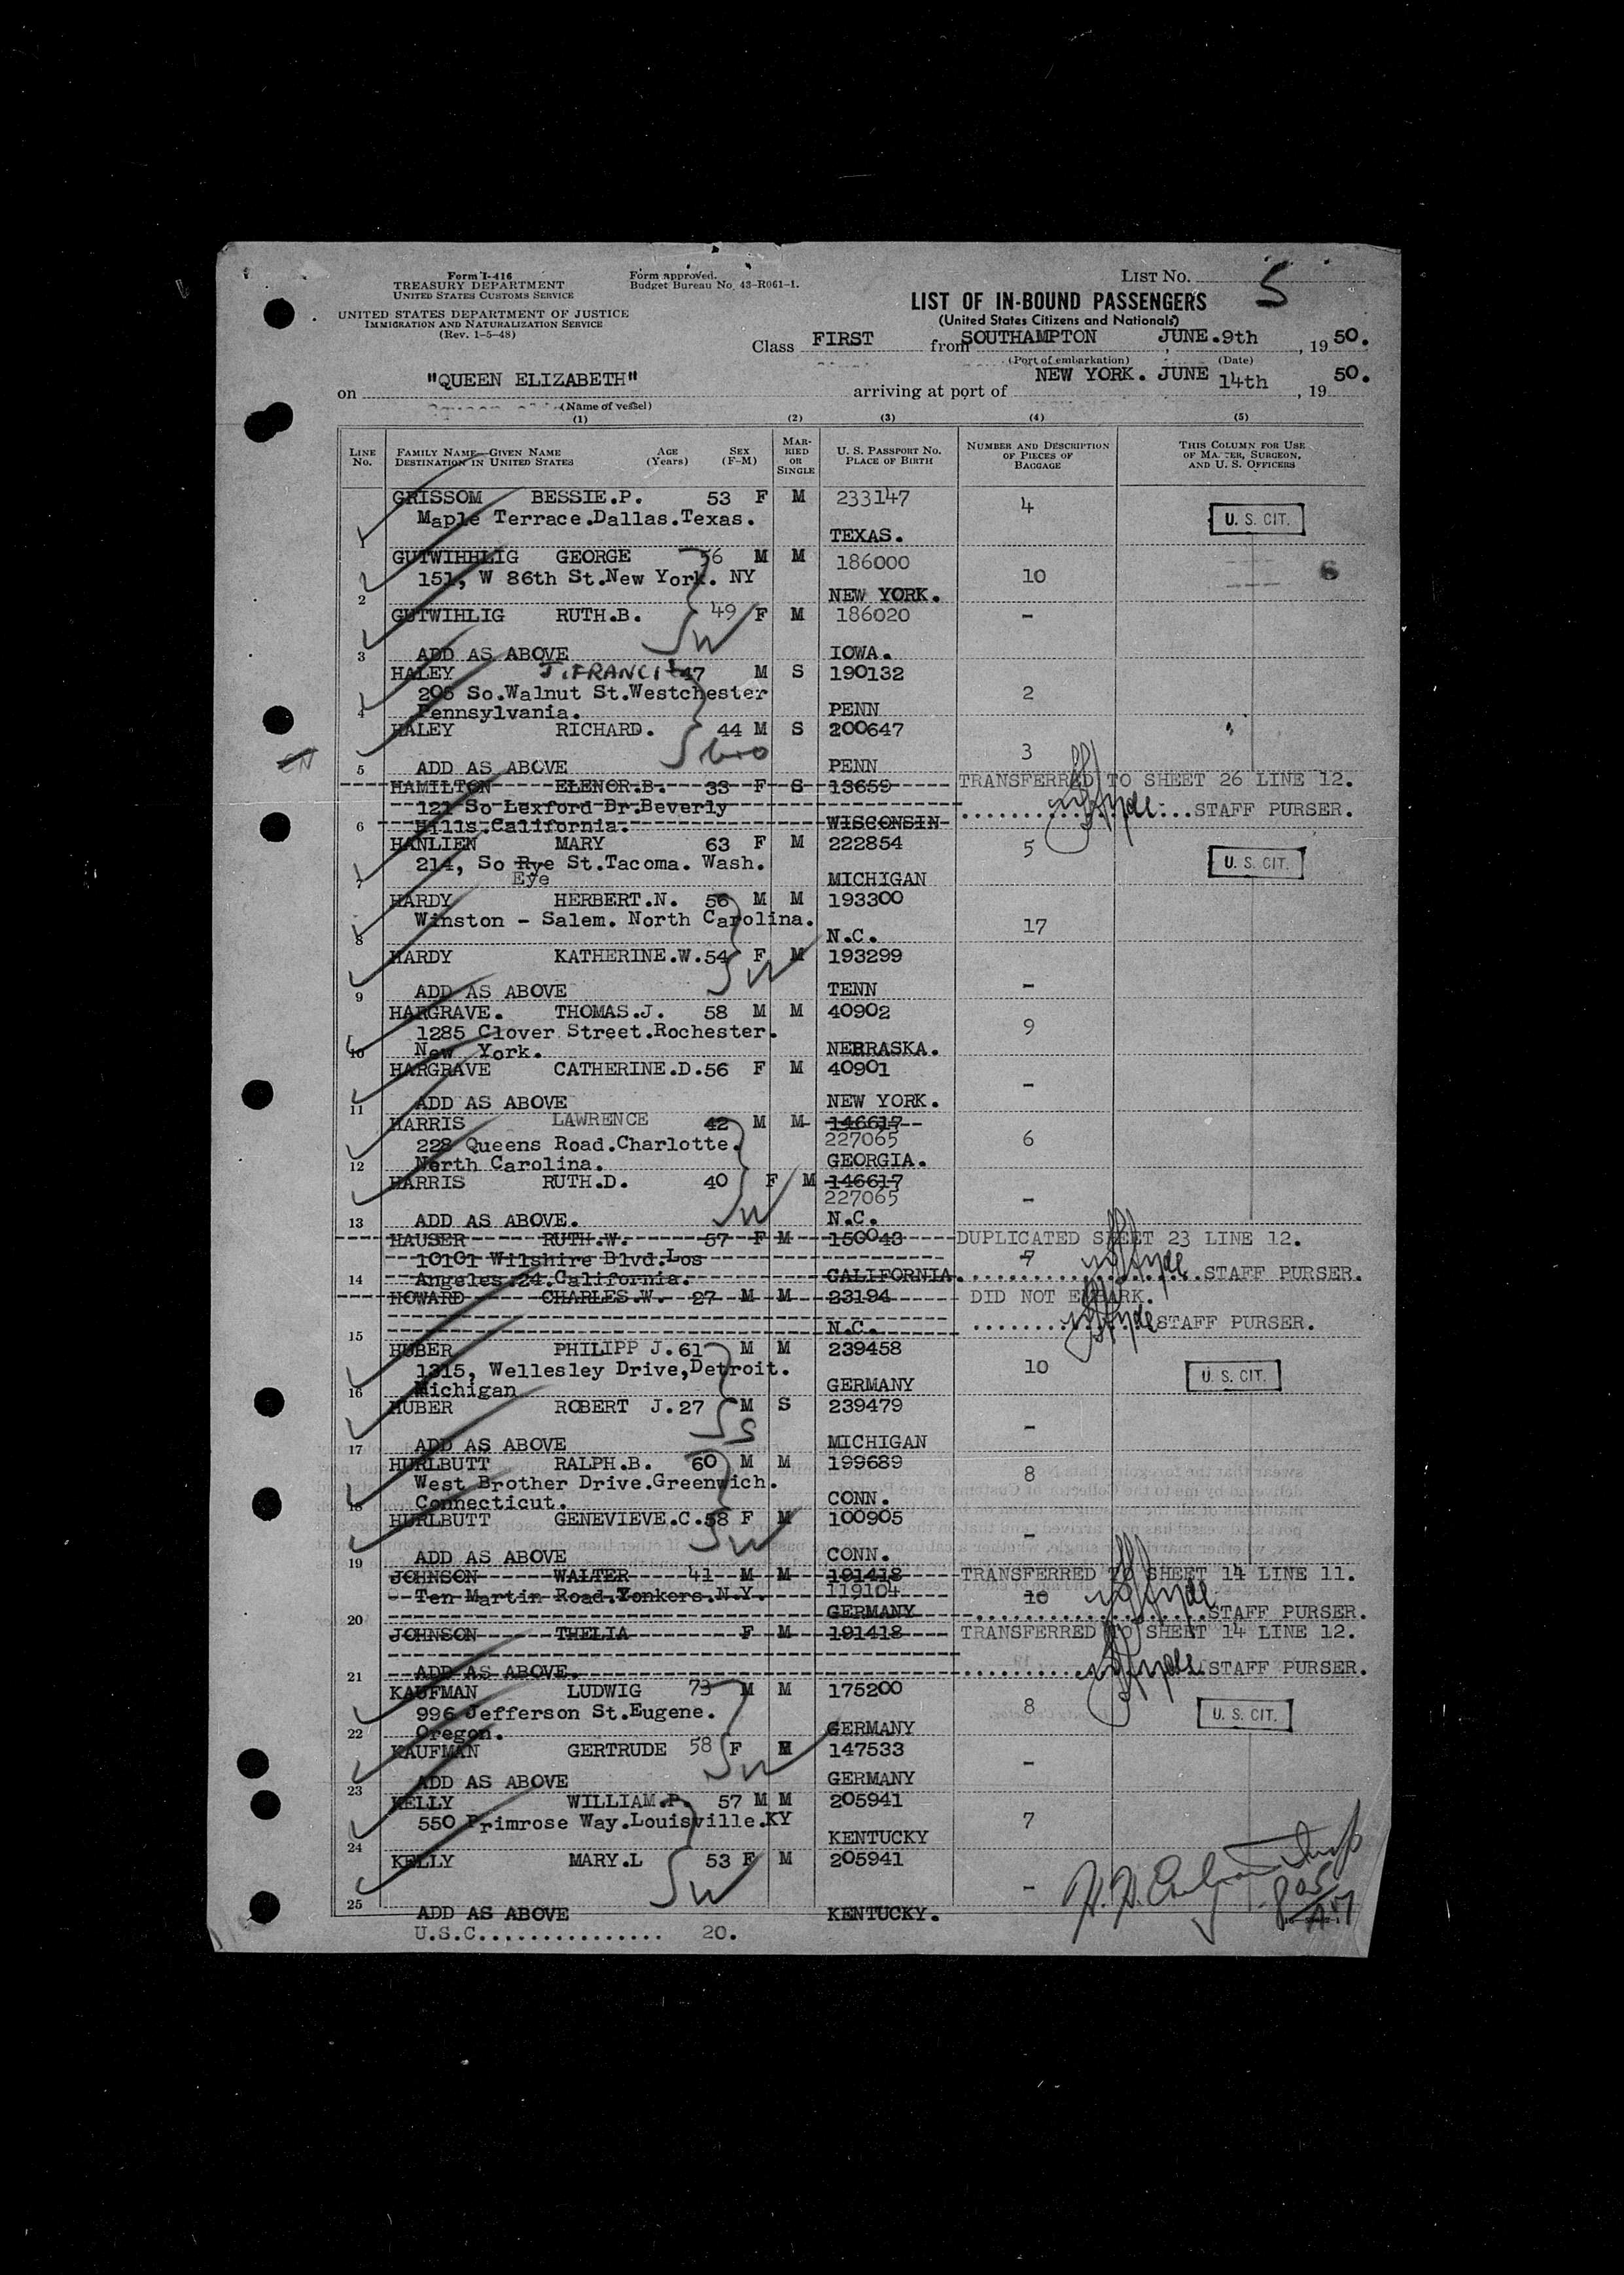 Form I-416
TREASURY DEPARTMENT
UNITED STATES CUSTOMS SERVICE
UNITED STATES DEPARTMENT OF JUSTICE
IMMIGRATION AND NATURALIZATION SERVICE
(Rev. 1-5-48)
Form approved.
Budget Bureau No. 43-R061-1.
LIST No. 5
LIST OF IN-BOUND PASSENGERS
(United States Citizens and Nationals)
Class FIRST from SOUTHAMPTON, JUNE.9th, 1950.
(Port of embarkation) (Date)
on "QUEEN ELIZABETH" arriving at port of NEW YORK. JUNE 14th, 1950.
(Name of vessel)
(1) (2) (3) (4) (5)
LINE No. FAMILY NAME—GIVEN NAME DESTINATION IN UNITED STATES AGE (Years) SEX (F-M) MARRIED OR SINGLE U. S. PASSPORT NO. PLACE OF BIRTH NUMBER AND DESCRIPTION OF PIECES OF BAGGAGE THIS COLUMN FOR USE OF MASTER, SURGEON, AND U. S. OFFICERS
GRISSOM BESSIE.P. 53 F M 233147 4 U. S. CIT.
Maple Terrace.Dallas.Texas.
1 TEXAS.
GUTWIHHLIG GEORGE 56 M M 186000
151, W 86th St.New York. NY 10
2 NEW YORK.
GUTWIHLIG RUTH.B. 49 F M 186020 -
W
3 ADD AS ABOVE IOWA.
HALEY J.FRANCIS 47 M S 190132
206 So.Walnut St.Westchester 2
4 Pennsylvania. PENN
HALEY RICHARD. 44 M S 200647
bro 3
5 ADD AS ABOVE PENN
HAMILTON ELENOR.B. 33 F S 13659 TRANSFERRED TO SHEET 26 LINE 12.
121 So Lexford Dr.Beverly
STAFF PURSER.
6 Hills.California. WISCONSIN
HANLIEN MARY 63 F M 222854 5 U. S. CIT.
214, So Rye St.Tacoma. Wash.
7 Eye MICHIGAN
HARDY HERBERT.N. 56 M M 193300
Winston - Salem. North Carolina. 17
8 N.C.
HARDY KATHERINE.W. 54 F M 193299
W -
9 ADD AS ABOVE TENN
HARGRAVE. THOMAS.J. 58 M M 40902
1285 Clover Street.Rochester. 9
10 New York. NEBRASKA.
HARGRAVE CATHERINE.D. 56 F M 40901
-
11 ADD AS ABOVE NEW YORK.
HARRIS LAWRENCE 42 M M 146617
228 Queens Road.Charlotte. 227065 6
12 North Carolina. GEORGIA.
HARRIS RUTH.D. 40 F M 146617
227065 -
W
13 ADD AS ABOVE. N.C.
HAUSER RUTH.W. 57 F M 150043 DUPLICATED SHEET 23 LINE 12.
10101 Wilshire Blvd.Los 7
14 Angeles.24.California. CALIFORNIA. STAFF PURSER.
HOWARD CHARLES.W. 27 M M 23194 DID NOT EMBARK.
15 N.C. STAFF PURSER.
HUBER PHILIPP J. 61 M M 239458
1315, Wellesley Drive,Detroit. 10 U. S. CIT.
16 Michigan GERMANY
HUBER ROBERT J. 27 M S 239479
S -
17 ADD AS ABOVE MICHIGAN
HURLBUTT RALPH.B. 60 M M 199689
West Brother Drive.Greenwich. 8
18 Connecticut. CONN.
HURLBUTT GENEVIEVE.C. 58 F M 100905
W -
19 ADD AS ABOVE CONN.
JOHNSON WALTER 41 M M 191418 TRANSFERRED TO SHEET 14 LINE 11.
Ten Martin Road.Yonkers.N.Y. 119104 10
20 GERMANY STAFF PURSER.
JOHNSON THELIA F M 191418 TRANSFERRED TO SHEET 14 LINE 12.
21 ADD AS ABOVE. STAFF PURSER.
KAUFMAN LUDWIG 73 M M 175200
996 Jefferson St.Eugene. 8 U. S. CIT.
22 Oregon. GERMANY
KAUFMAN GERTRUDE 58 F M 147533
W -
23 ADD AS ABOVE GERMANY
KELLY WILLIAM.P. 57 M M 205941
550 Primrose Way.Louisville.KY 7
24 KENTUCKY
KELLY MARY.L 53 F M 205941
W -
25
ADD AS ABOVE KENTUCKY.
U.S.C................ 20.